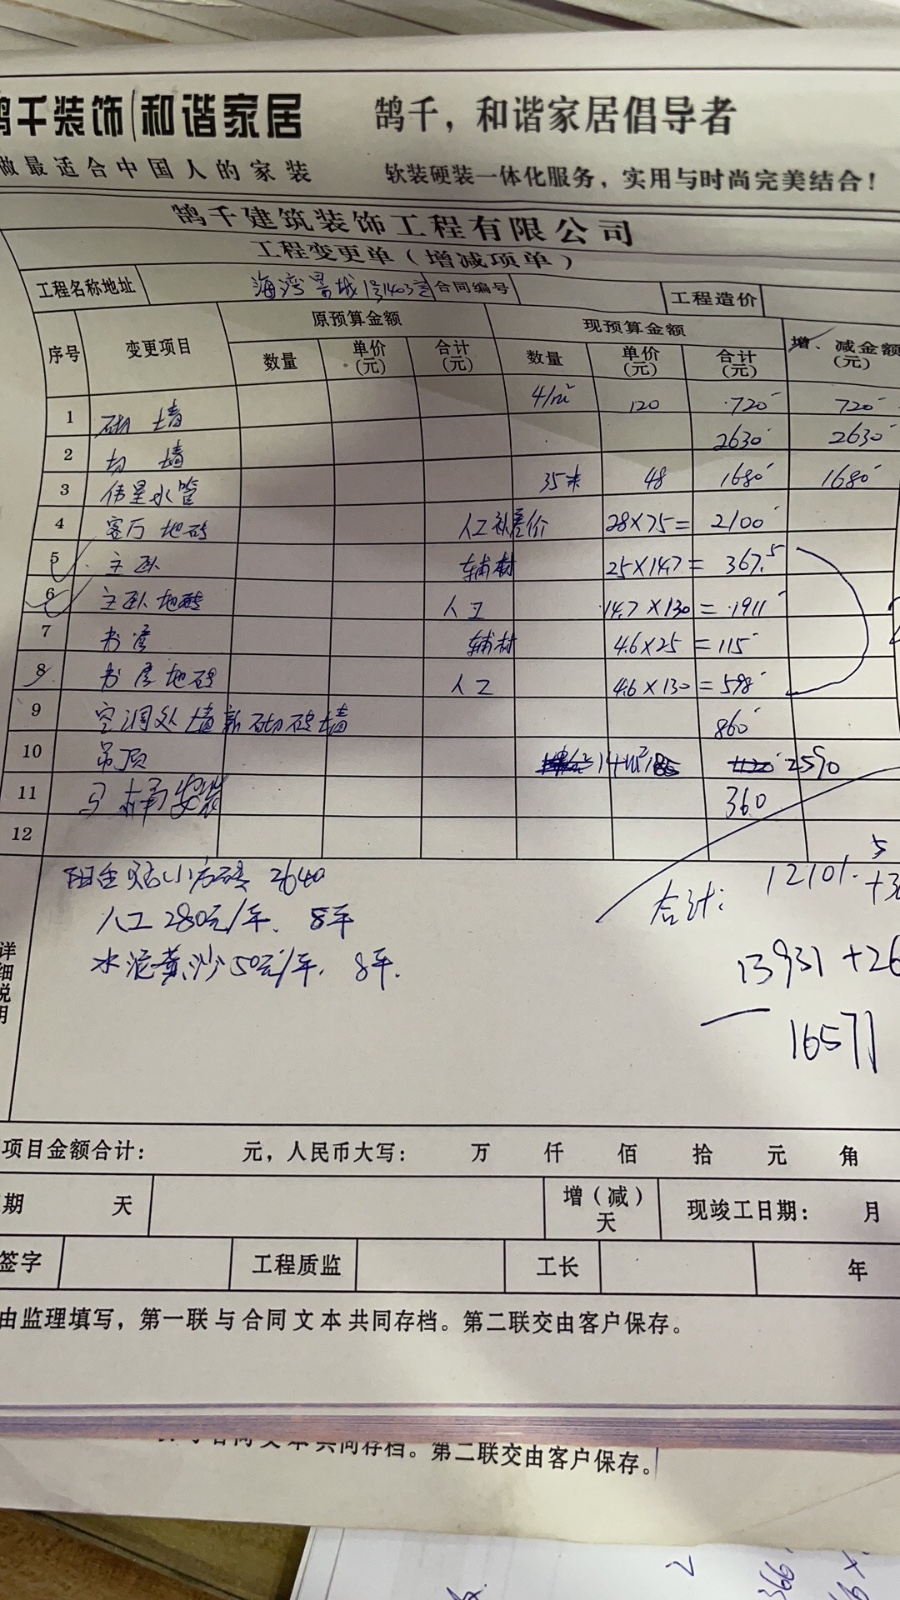 鹄千装饰 和谐家居 鹄千，和谐家居倡导者
做最适合中国人的家装 软装硬装一体化服务，实用与时尚完美结合！
鹄千建筑装饰工程有限公司
工程变更单（增减项单）
工程名称地址 海湾景城1号1403室 合同编号 工程造价
序号 变更项目 原预算金额 现预算金额 增、减金额(元)
数量 单价(元) 合计(元) 数量 单价(元) 合计(元)
1 砌墙 120 720 720
2 切墙 2630 2630
3 伟星水管 35米 48 1680 1680
4 客厅地砖 人工补差价 28×75= 2100
5 主卧 辅材 25×14.7= 367.5
6 主卧地砖 人工 14.7×130= 1911
7 书房 辅材 4.6×25 =115
8 书房地砖 人工 4.6×130 =598
9 空调处墙新砌砖墙 860
10 吊顶 14m² 2590
11 马桶安装 360
12
阳台贴小方砖 2640
人工280元/平. 8平
水泥黄沙50元/平. 8平.
合计: 12101.5
13931+26
16571
详细说明
项目金额合计： 元，人民币大写： 万 仟 佰 拾 元 角
期 天 增（减）天 现竣工日期： 月
签字 工程质监 工长 年
由监理填写，第一联与合同文本共同存档。第二联交由客户保存。
合同文本共同存档。第二联交由客户保存。